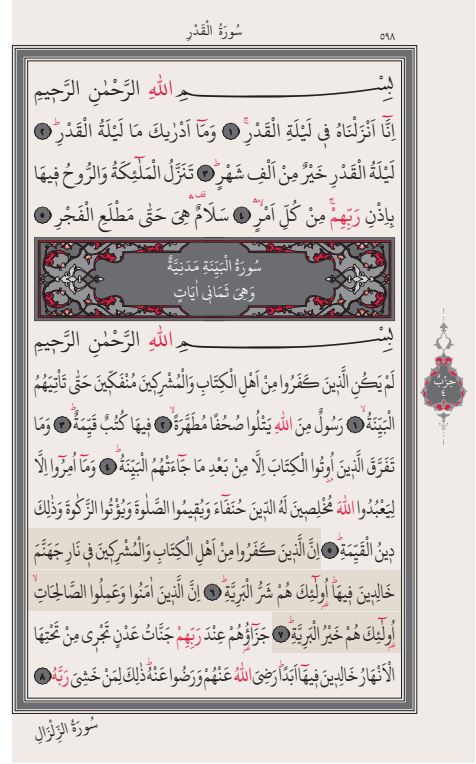 سُورَةُ الْقَدْرِ
٥٩٨
بِسْمِ اللّٰهِ الرَّحْمٰنِ الرَّحِيمِ
اِنَّٓا اَنْزَلْنَاهُ فِى لَيْلَةِ الْقَدْرِۚ ﴿١﴾ وَمَٓا اَدْرٰيكَ مَا لَيْلَةُ الْقَدْرِۜ ﴿٢﴾
لَيْلَةُ الْقَدْرِ خَيْرٌ مِنْ اَلْفِ شَهْرٍۜ ﴿٣﴾ تَنَزَّلُ الْمَلٰٓئِكَةُ وَالرُّوحُ فِيهَا
بِاِذْنِ رَبِّهِمْۚ مِنْ كُلِّ اَمْرٍۙۛ ﴿٤﴾ سَلَامٌ۠ۛ هِىَ حَتّٰى مَطْلَعِ الْفَجْرِ ﴿٥﴾
سُورَةُ الْبَيِّنَةِ مَدَنِيَّةٌ
وَهِىَ ثَمَانِى اٰيَاتٍ
بِسْمِ اللّٰهِ الرَّحْمٰنِ الرَّحِيمِ
لَمْ يَكُنِ الَّذِينَ كَفَرُوا مِنْ اَهْلِ الْكِتَابِ وَالْمُشْرِكِينَ مُنْفَكِّينَ حَتّٰى تَأْتِيَهُمُ
الْبَيِّنَةُۙ ﴿١﴾ رَسُولٌ مِنَ اللّٰهِ يَتْلُوا صُحُفًا مُطَهَّرَةًۙ ﴿٢﴾ فِيهَا كُتُبٌ قَيِّمَةٌۜ ﴿٣﴾ وَمَا
تَفَرَّقَ الَّذِينَ اُوتُوا الْكِتَابَ اِلَّا مِنْ بَعْدِ مَا جَٓاءَتْهُمُ الْبَيِّنَةُۜ ﴿٤﴾ وَمَٓا اُمِرُٓوا اِلَّا
لِيَعْبُدُوا اللّٰهَ مُخْلِصِينَ لَهُ الدِّينَ حُنَفَٓاءَ وَيُقِيمُوا الصَّلٰوةَ وَيُؤْتُوا الزَّكٰوةَ وَذٰلِكَ
دِينُ الْقَيِّمَةِۜ ﴿٥﴾ اِنَّ الَّذِينَ كَفَرُوا مِنْ اَهْلِ الْكِتَابِ وَالْمُشْرِكِينَ فِى نَارِ جَهَنَّمَ
خَالِدِينَ فِيهَاۜ اُو۬لٰٓئِكَ هُمْ شَرُّ الْبَرِيَّةِۜ ﴿٦﴾ اِنَّ الَّذِينَ اٰمَنُوا وَعَمِلُوا الصَّالِحَاتِۙ
اُو۬لٰٓئِكَ هُمْ خَيْرُ الْبَرِيَّةِۜ ﴿٧﴾ جَزَٓاؤُ۬هُمْ عِنْدَ رَبِّهِمْ جَنَّاتُ عَدْنٍ تَجْرِى مِنْ تَحْتِهَا
الْاَنْهَارُ خَالِدِينَ فِيهَٓا اَبَدًاۜ رَضِىَ اللّٰهُ عَنْهُمْ وَرَضُوا عَنْهُۜ ذٰلِكَ لِمَنْ خَشِىَ رَبَّهُ ﴿٨﴾
حِزْبٌ
٤
سُورَةُ الزِّلْزَالِ